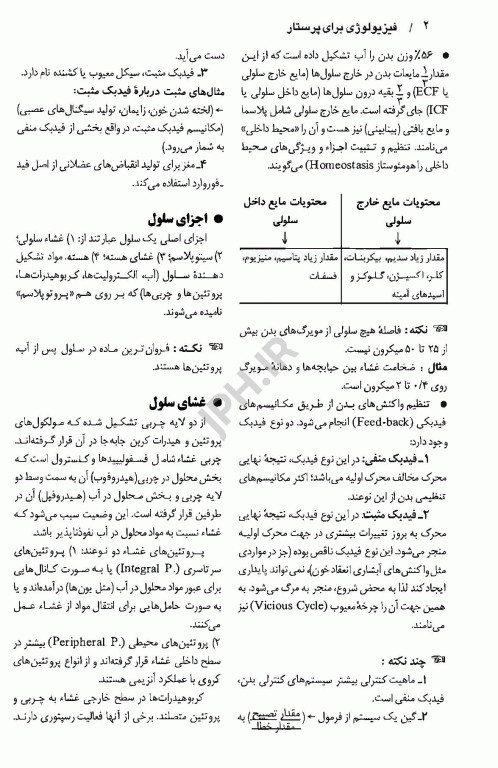 ۲ / فیزیولوژی برای پرستار
● ۵۶٪ وزن بدن را آب تشکیل داده است که از این
مقدار ۱/۳ مایعات بدن در خارج سلول‌ها (مایع خارج سلولی
یا ECF) و ۲/۳ بقیه درون سلول‌ها (مایع داخل سلولی یا
ICF) جای گرفته است. مایع خارج سلولی شامل پلاسما
و مایع بافتی (بینابینی) نیز هست و آن را «محیط داخلی»
می‌نامند. تنظیم و تثبیت اجزاء و ویژگی‌های محیط
داخلی را هومئوستاز (Homeostasis) می‌گویند.
محتویات مایع خارج سلولی
↓
مقدار زیاد سدیم، بیکربنات،
کلر، اکسیژن، گلوکز و
اسیدهای آمینه
محتویات مایع داخل سلولی
↓
مقدار زیاد پتاسیم، منیزیوم،
فسفات
نکته : فاصلهٔ هیچ سلولی از مویرگ‌های بدن بیش
از ۲۵ تا ۵۰ میکرون نیست.
مثال : ضخامت غشاء بین حبابچه‌ها و دهانهٔ مویرگ
روی ۰/۴ تا ۲ میکرون است.
● تنظیم واکنش‌های بدن از طریق مکانیسم‌های
فیدبکی (Feed-back) انجام می‌شود. دو نوع فیدبک
وجود دارد:
۱ـ فیدبک منفی: در این نوع فیدبک، نتیجهٔ نهایی
محرک مخالف محرک اولیه می‌باشد؛ اکثر مکانیسم‌های
تنظیمی بدن از این نوعند.
۲ـ فیدبک مثبت: در این نوع فیدبک، نتیجهٔ نهایی
محرک به بروز تغییرات بیشتری در جهت محرک اولیه
منجر می‌شود. این نوع فیدبک ناقص بوده (جز در مواردی
مثل واکنش‌های آبشاری انعقاد خون)، نمی‌تواند پایداری
ایجاد کند لذا به محض شروع، منجر به مرگ می‌شود. به
همین جهت آن را چرخهٔ معیوب (Vicious Cycle) نیز
می‌نامند.
چند نکته :
۱ـ ماهیت کنترلی بیشتر سیستم‌های کنترلی بدن،
فیدبک منفی است.
۲ـ گین یک سیستم از فرمول ← (مقدار تصحیح/مقدار خطا) به
دست می‌آید.
۳ـ فیدبک مثبت، سیکل معیوب یا کشنده نام دارد.
مثال‌های مثبت دربارهٔ فیدبک مثبت:
← (لخته شدن خون، زایمان، تولید سیگنال‌های عصبی)
(مکانیسم فیدبک مثبت، در واقع بخشی از فیدبک منفی
به شمار می‌رود)
۴ـ مغز برای تولید انقباض‌های عضلانی از اصل فید
ـ فوروارد استفاده می‌کند.
● اجزای سلول
اجزای اصلی یک سلول عبارتند از: ۱) غشاء سلولی؛
۲) سیتوپلاسم؛ ۳) غشای هسته؛ ۴) هسته. مواد تشکیل
دهندهٔ سلول (آب، الکترولیت‌ها، کربوهیدرات‌ها،
پروتئین‌ها و چربی‌ها) که بر روی هم «پروتوپلاسم»
نامیده می‌شوند.
نکته : فروان‌ترین ماده در سلول پس از آب،
پروتئین‌ها هستند.
● غشای سلول
از دو لایه چربی تشکیل شده که مولکول‌های
پروتئین و هیدرات کربن جابه‌جا در آن قرار گرفته‌اند.
چربی غشاء شامل فسفولیپیدها و کلسترول است که
بخش محلول در چربی (هیدروفوب) آن به سمت وسط دو
لایه چربی و بخش محلول در آب (هیدروفیل) آن در
طرفین قرار گرفته است. این وضعیت سبب می‌شود که
غشاء نسبت به مواد محلول در آب نفوذناپذیر باشد.
پروتئین‌های غشاء دو نوعند: ۱) پروتئین‌های
سرتاسری (Integral P.) یا به صورت کانال‌هایی
برای عبور مواد محلول در آب (مثل یون‌ها) درآمده‌اند و یا
به صورت حامل‌هایی برای انتقال مواد از غشاء عمل
می‌کنند.
۲) پروتئین‌های محیطی (Peripheral P.) بیشتر در
سطح داخلی غشاء قرار گرفته‌اند و از انواع پروتئین‌های
کروی با عملکرد آنزیمی هستند.
کربوهیدرات‌ها در سطح خارجی غشاء به چربی و
پروتئین متصلند. برخی از آنها فعالیت رسپتوری دارند.
JPH.IR